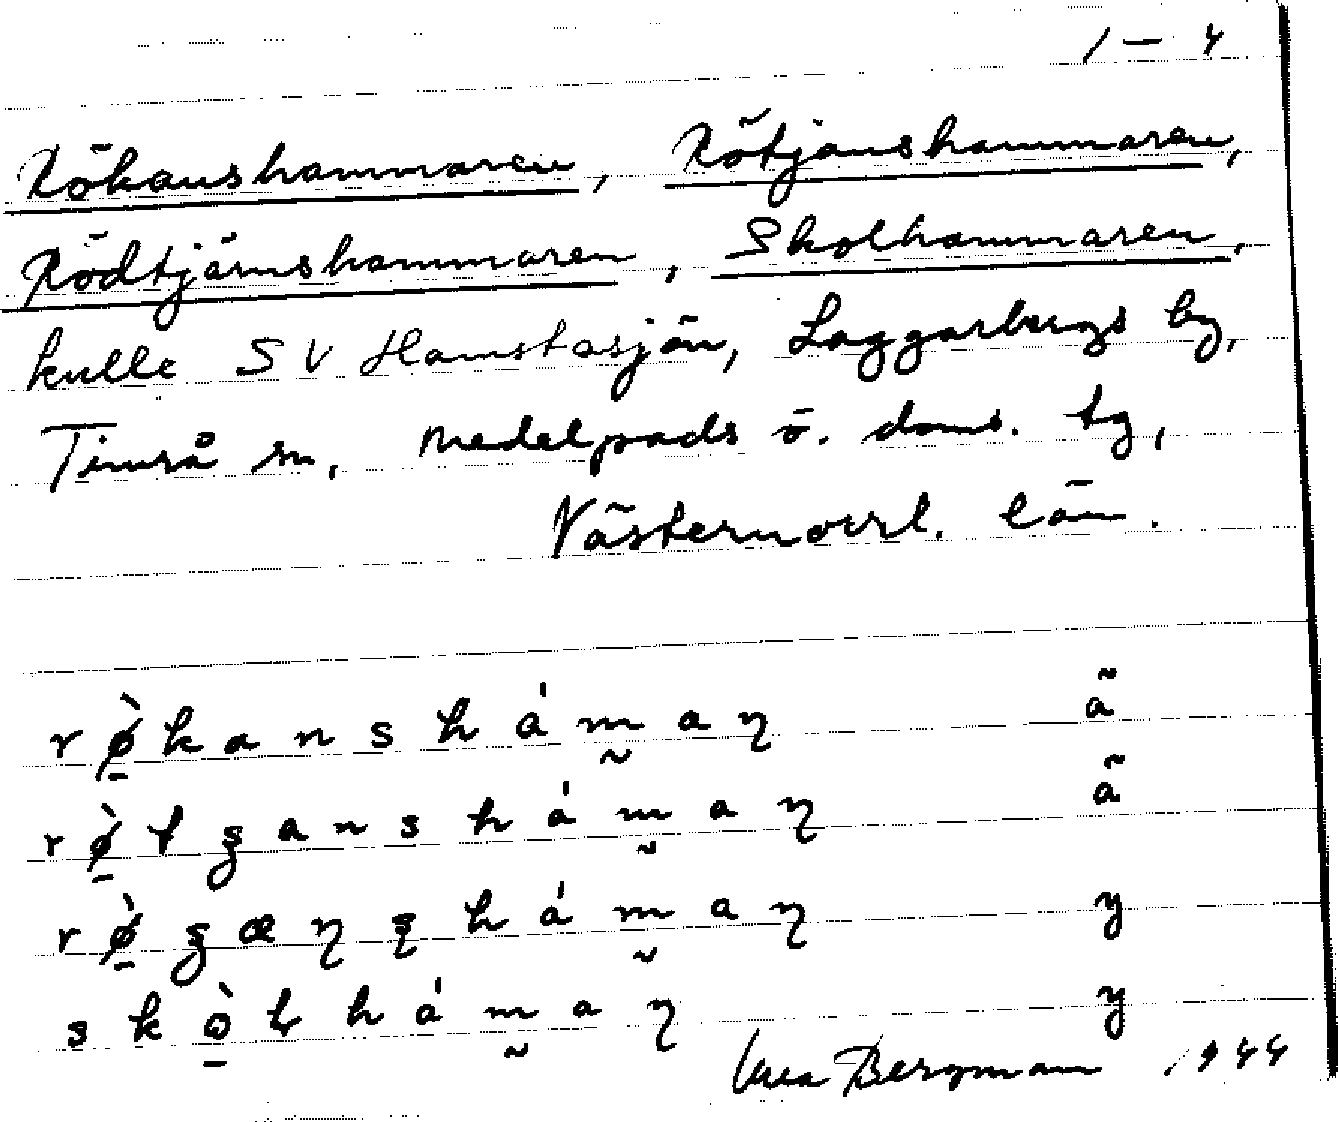 1 – 4
Rökanshammaren, Rötjanshammaren,
Rödtjärnshammaren, Skolhammaren,
kulle SV Hamstasjön, Laggarbergs by,
Timrå sn, Medelpads ö. doms. tg,
Västernorrl. län.
rø̱̀kanshám̰aɳ ã
rø̱̀tʒanshám̰aɳ ã
rø̱̀ʒæɳʂhám̰aɳ y
skò̱ɭhám̰aɳ y
Bergman 1944